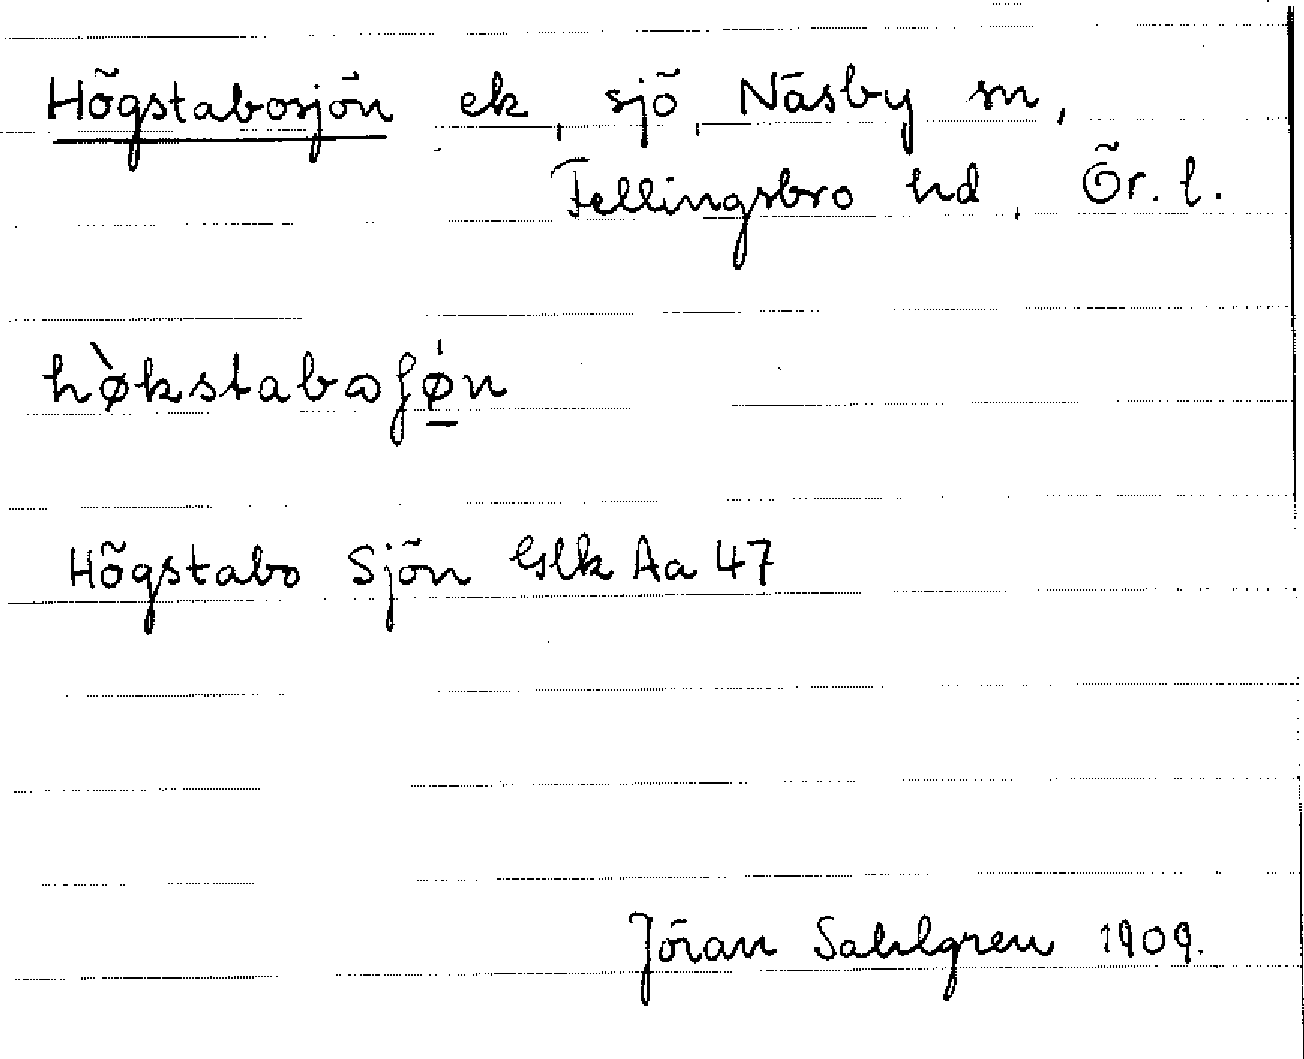 Högstabosjön ek, sjö, Näsby sn,
Fellingsbro hd, Ör. l.
hø̀kstabωʃǿ̲n
Högstabo Sjön Glk Aa 47
Jöran Sahlgren 1909.